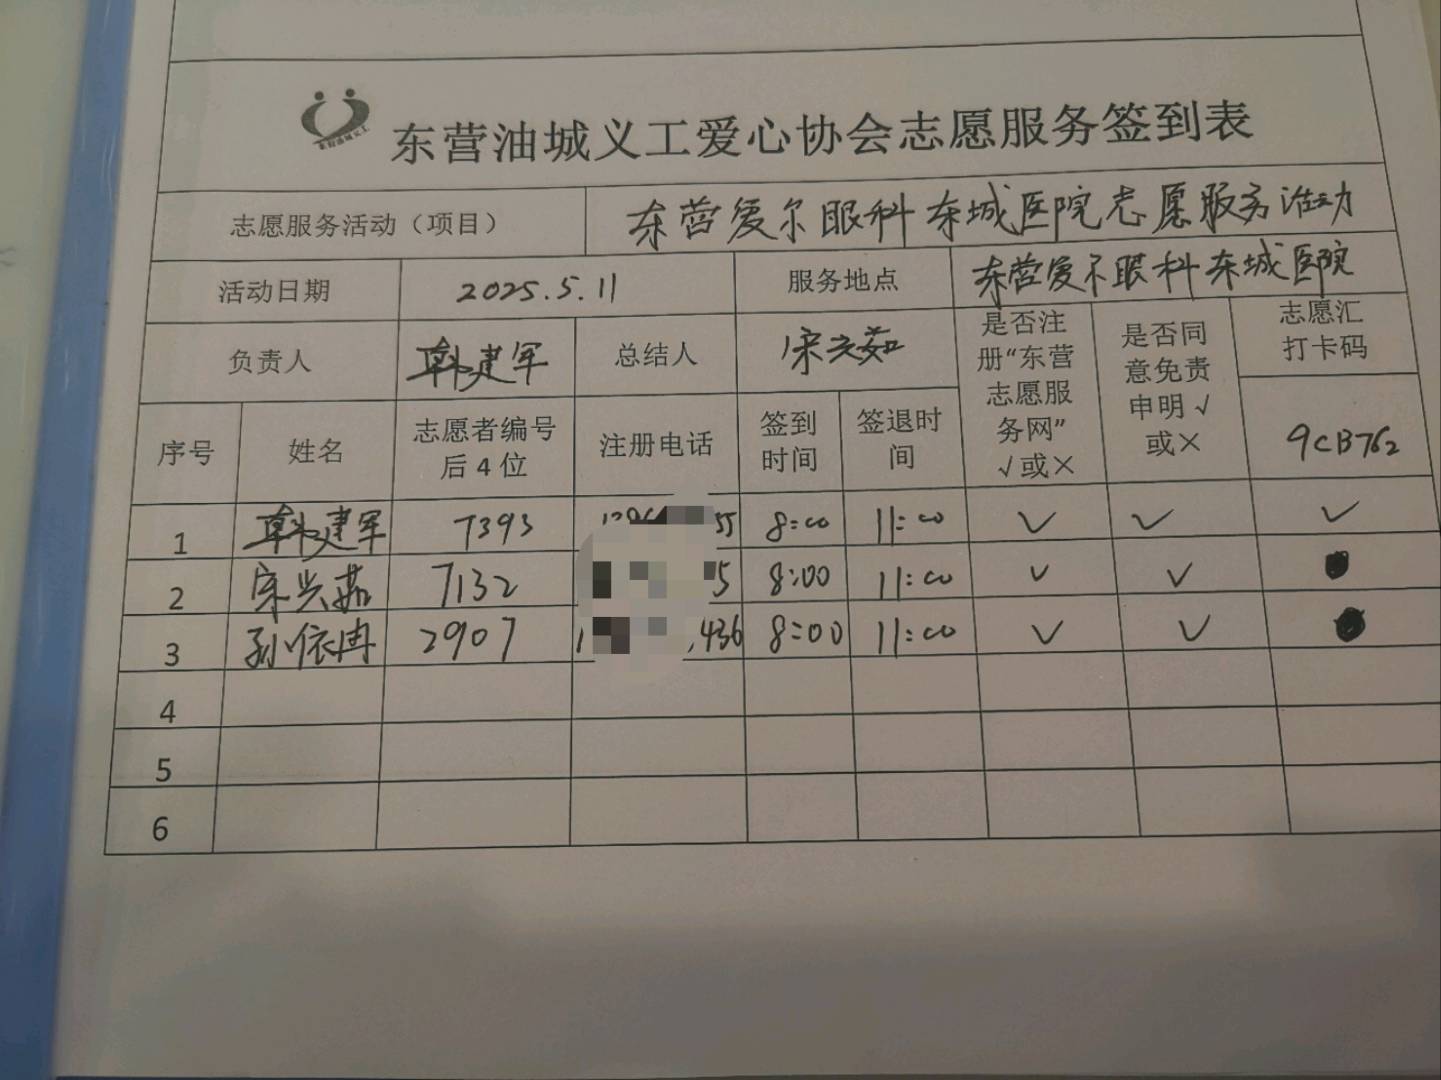 东营油城义工爱心协会志愿服务签到表
志愿服务活动（项目） 东营爱尔眼科东城医院志愿服务活动
活动日期 2025.5.11 服务地点 东营爱尔眼科东城医院
负责人 韩建军 总结人 宋兴茹 是否注册“东营志愿服务网”√或× 是否同意免责申明√或× 志愿汇打卡码
序号 姓名 志愿者编号后4位 注册电话 签到时间 签退时间 9CB762
1 韩建军 7393 55 8:00 11:00 ✓ ✓ ✓
2 宋兴茹 7132 5 8:00 11:00 ✓ ✓
3 孙依冉 2907 1 436 8:00 11:00 ✓ ✓
4
5
6